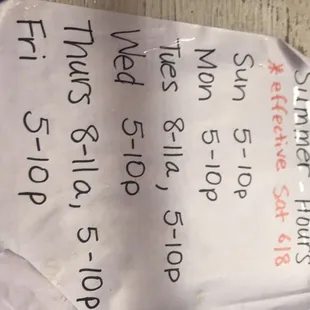 Summer-Hours
* effective Sat 6/8
Sun 5-10p
Mon 5-10p
Tues 8-11a, 5-10p
Wed 5-10p
Thurs 8-11a, 5-10p
Fri 5-10p